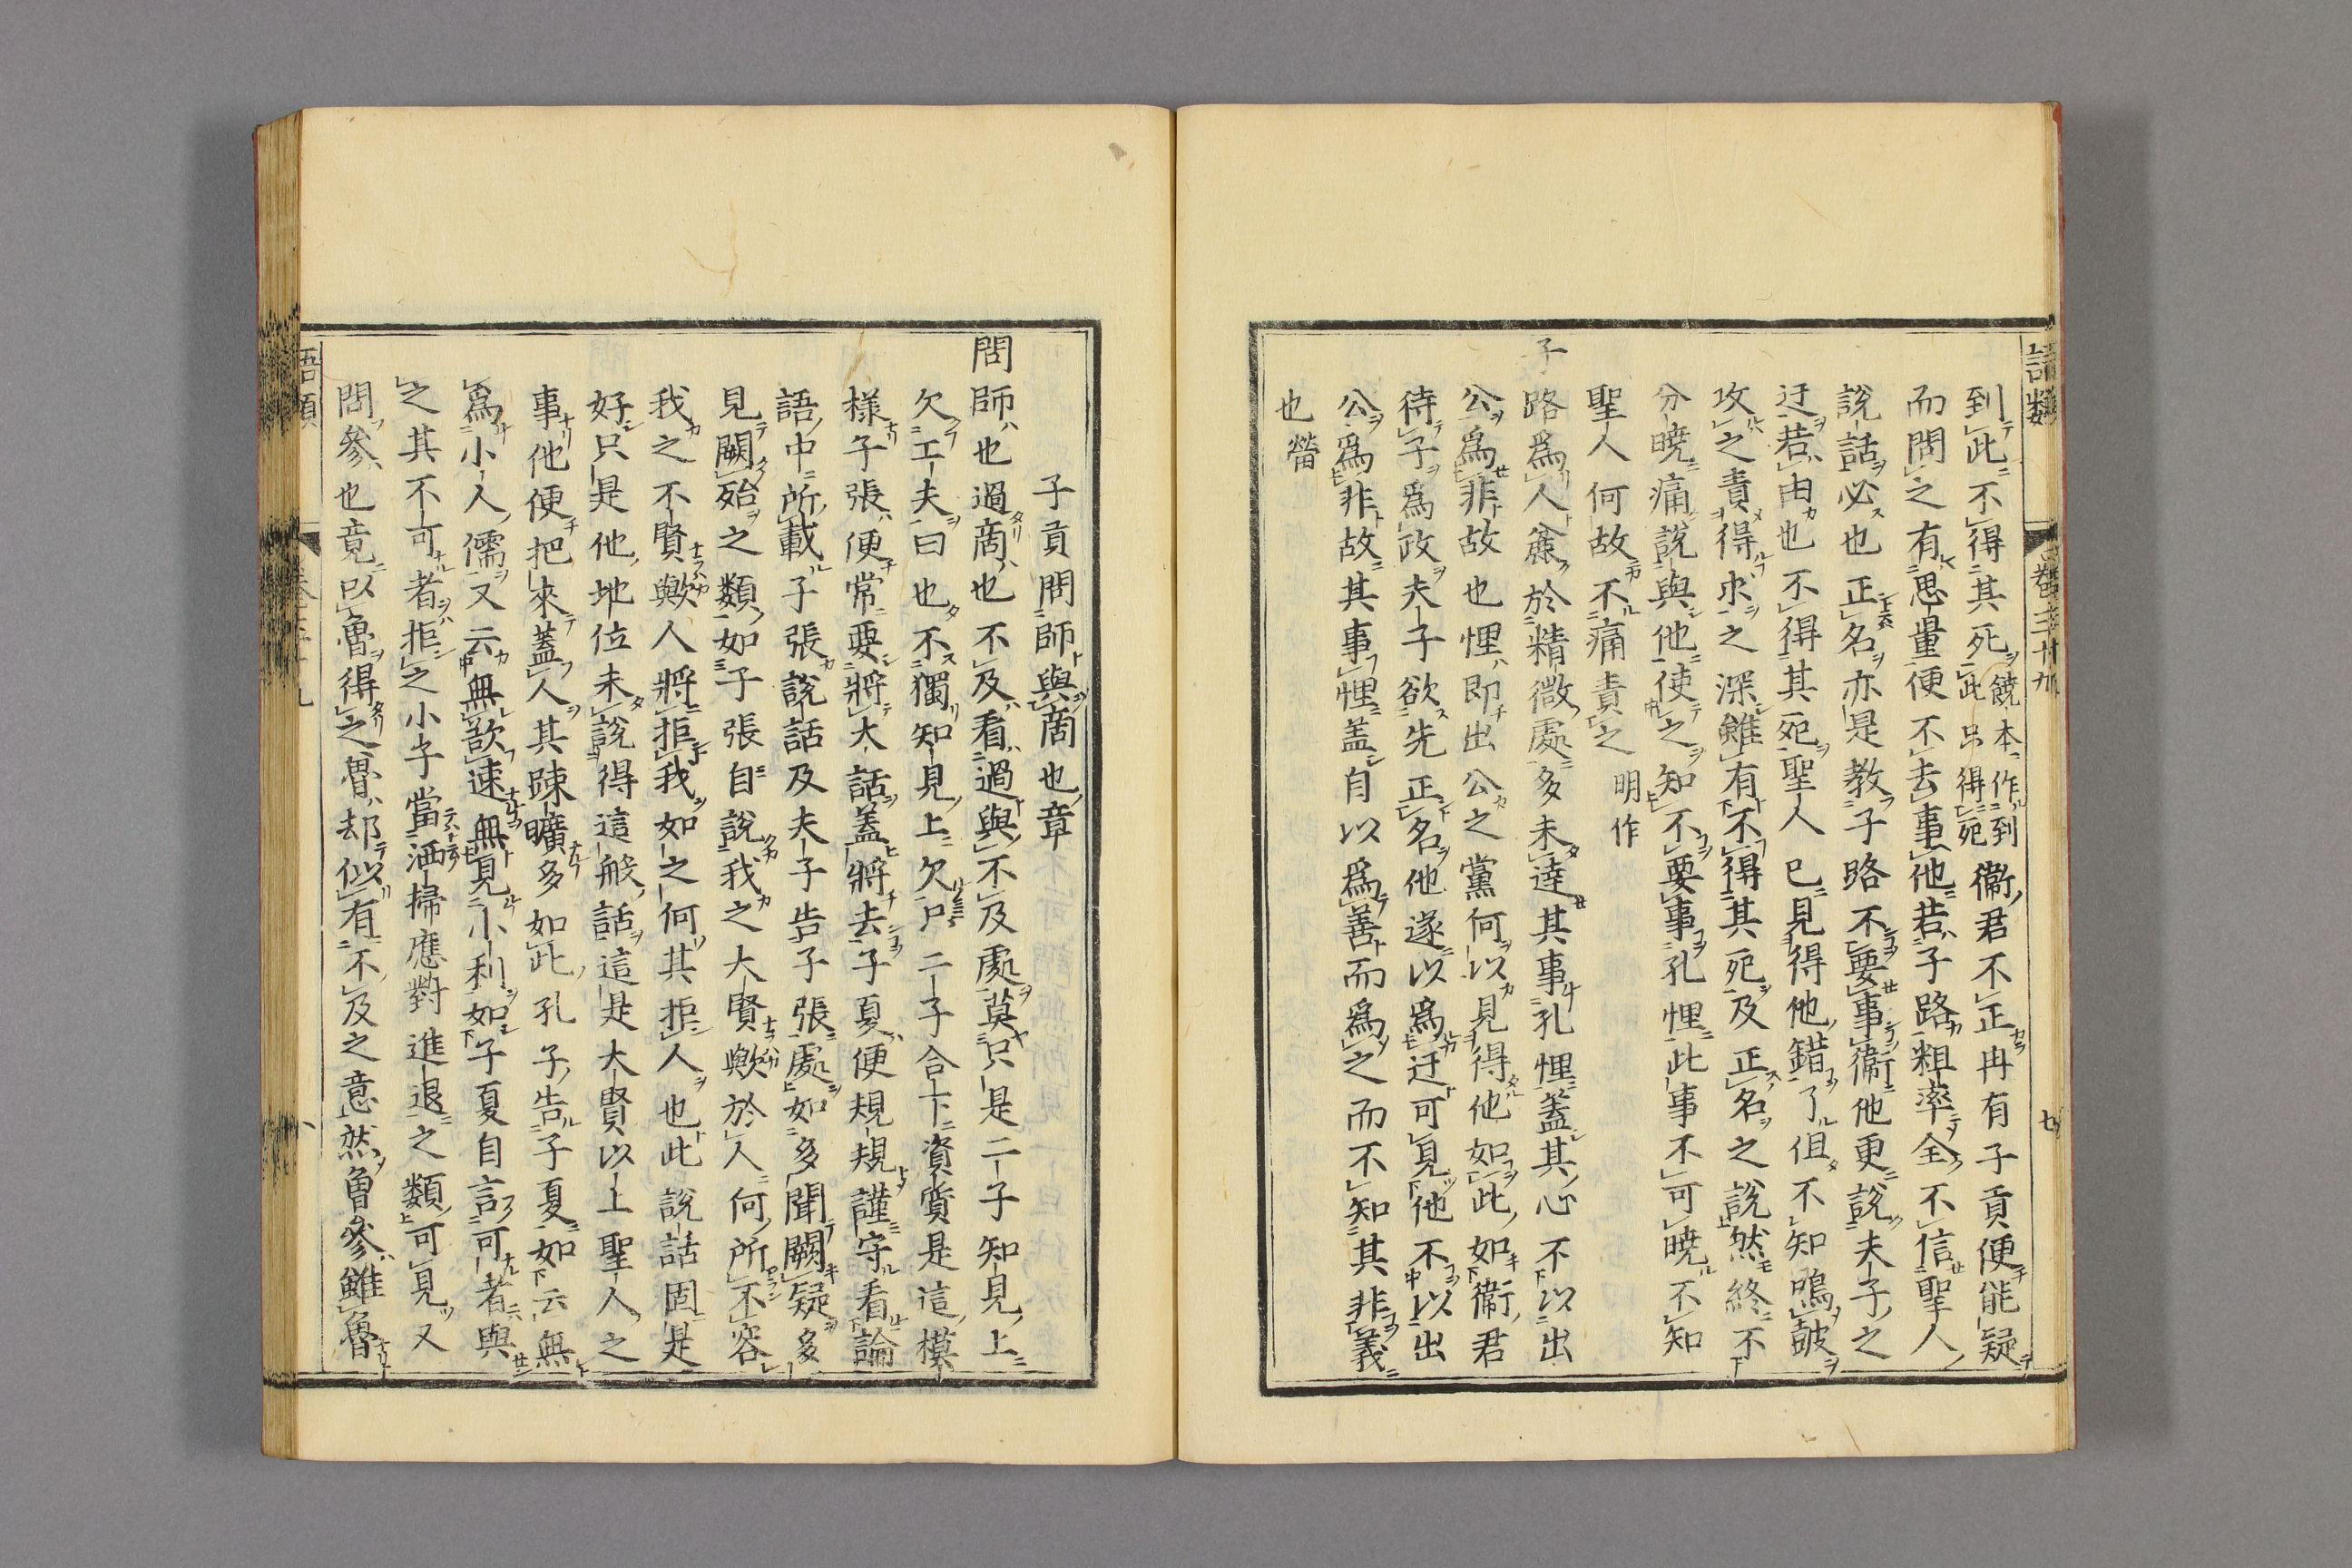 語類
卷三十九
七
到此不得其死饒本作到此吊得死衞君不正冉有子貢便能疑
而問之有思量便不去事他若子路粗率全不信聖人
說話必也正名亦是教子路不要事衞他更說夫子之
迂若由也不得其死聖人已見得他錯了但不知鳴鼓
攻之責得求之深雖有不得其死及正名之說然終不
分曉痛說與他使之知不要事孔悝此事不可曉不知
聖人何故不痛責之明作
子路爲人麄於精微處多未達其事孔悝蓋其心不以出
公爲非故也悝即出公之黨何以見得他如此如衞君
待子爲政夫子欲先正名他遂以爲迂可見他不以出
公爲非故其事悝盖自以爲善而爲之而不知其非義
也㽦
子貢問師與商也章
問師也過商也不及看過與不及處莫只是二子知見上
欠工夫曰也不獨知見上欠只二子合下資質是這模
樣子張便常要將大話蓋將去子夏便規規謹守看論
語中所載子張說話及夫子告子張處如多聞闕疑多
見闕殆之類如子張自說我之大賢歟於人何所不容
我之不賢歟人將拒我如之何其拒人也此說話固是
好只是他地位未說得這般話這是大賢以上聖人之
事他便把來蓋人其踈曠多如此孔子告子夏如云無
爲小人儒又云無欲速無見小利如子夏自言可者與
之其不可者拒之小子當洒掃應對進退之類可見又
問參也竟以魯得之魯却似有不及之意然曾參雖魯
語類
卷三十九
八